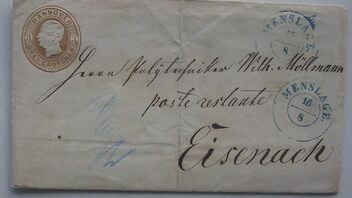 HANNOVER
DREI GROSCHEN
MENSLAGE.
16
8
Herrn Polytechniker Wilh. Möllmann
poste restante
MENSLAGE.
16
8
Eisenach